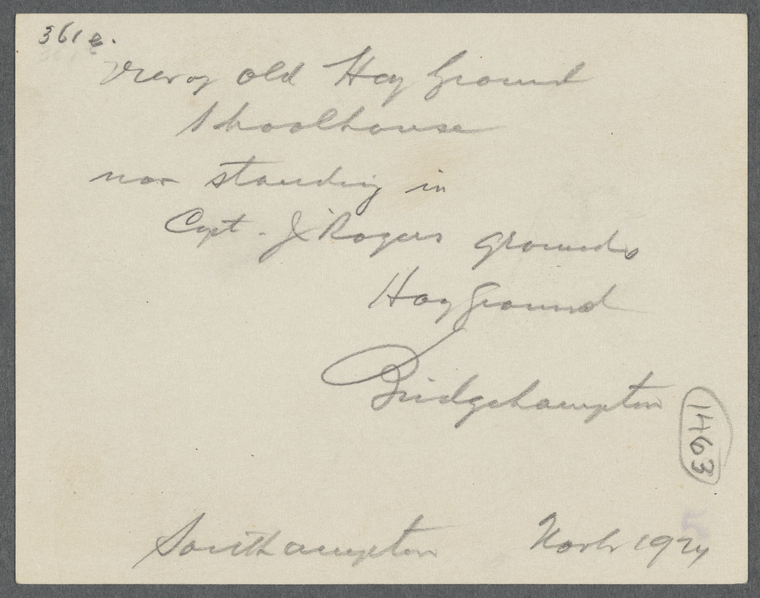 361 e.
View of old Hay Ground
Schoolhouse
now standing in
Capt. J Rogers grounds
Hay Ground
Bridgehampton
1463
Southampton 192